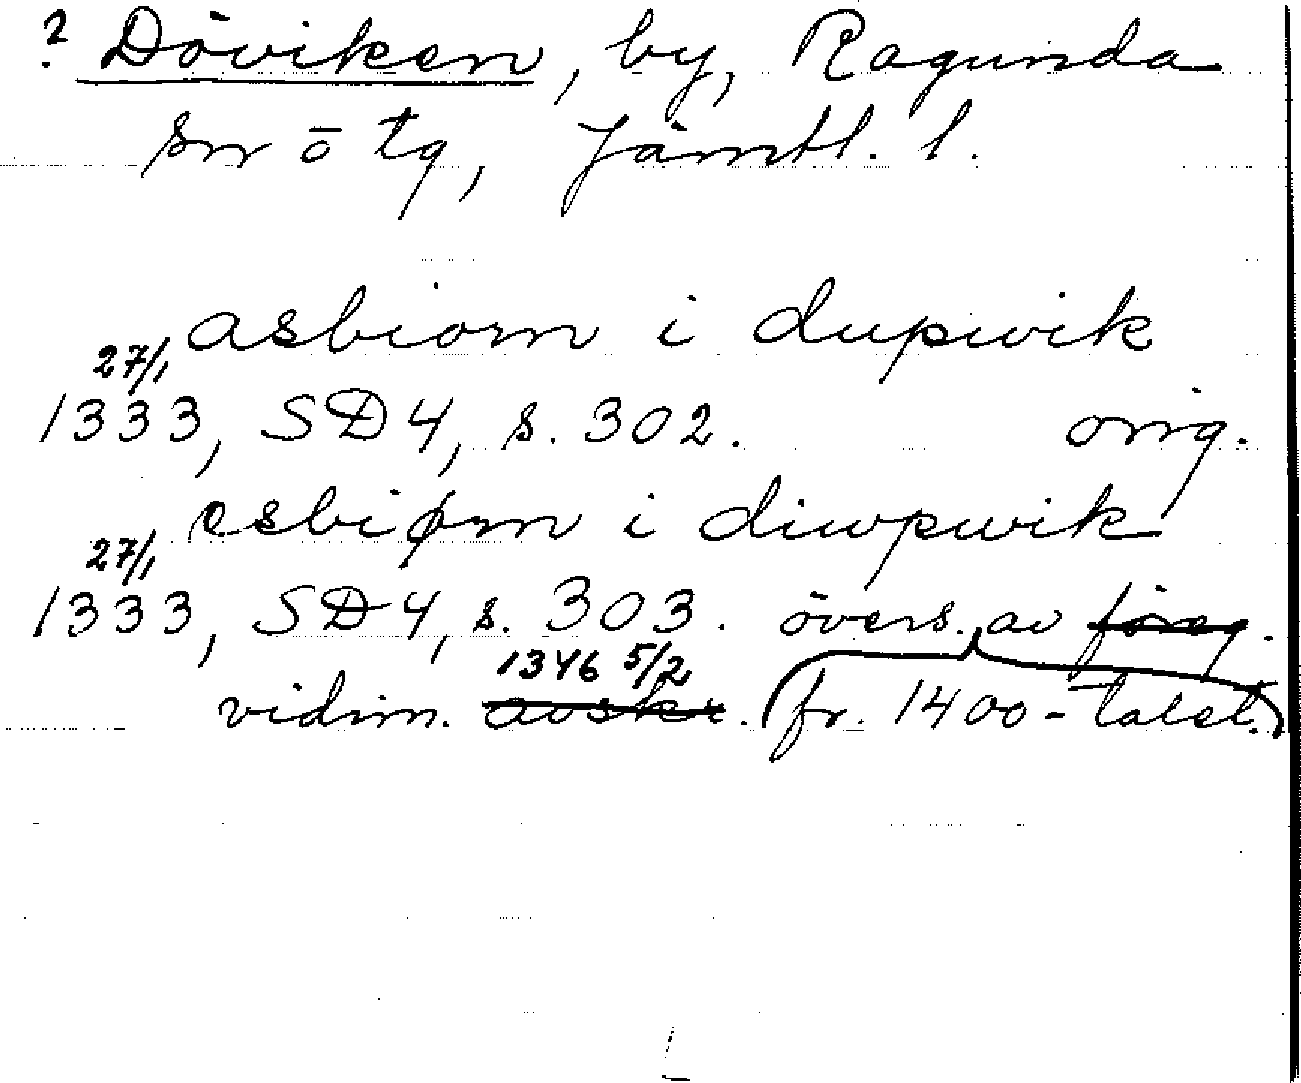 ? Döviken, by, Ragunda
sn o tg, Jämtl. l.
asbiorn i dupwik
27/1
1333, SD4, s. 302. orig.
esbiørn i diwpwik
27/1
1333, SD4, s. 303. övers. av föreg.
1346 5/2
vidim. avskr. (fr. 1400-talet.)